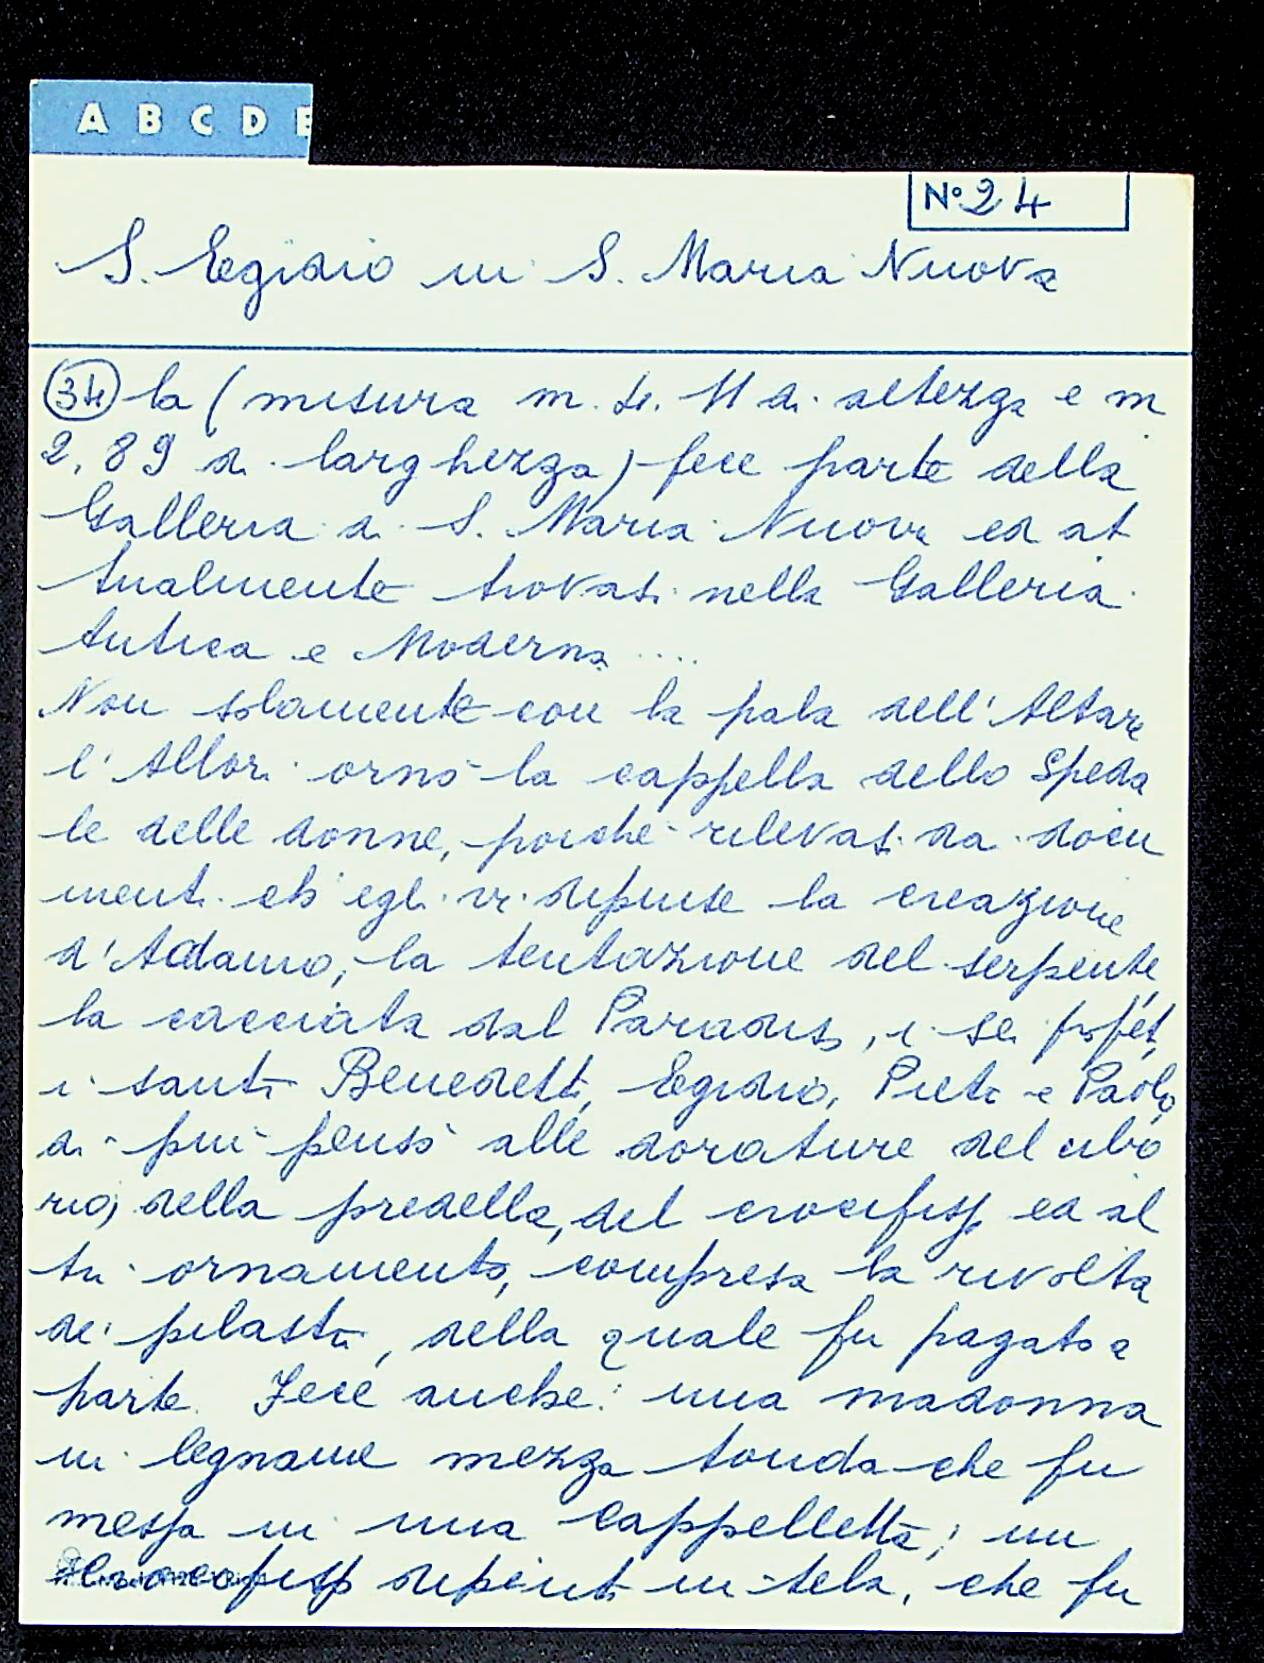 A B C D E
N° 24
S. Egidio in S. Maria Nuova
34 la (misura m. 4. 11 di altezza e m
2,89 di larghezza) fece parte della
Galleria di S. Maria Nuova ed at
tualmente trovasi nella Galleria
Antica e Moderna ....
Non solamente con la pala dell'Altare
l'Allori ornò la cappella dello Speda
le delle donne, poiché rilevasi da docu
menti ch'egli vi dipinse la creazione
d'Adamo, la tentazione del serpente,
la cacciata dal Paradiso, i sei profeti,
i santi Benedetto, Egidio, Pietro e Paolo,
di più pensò alle dorature del cibo
rio, della predella, del crocifisso ed al
tri ornamento, compresa la rivolta
dei pilastri, della quale fu pagato a
parte. Fece anche: una madonna
in legname mezza tonda che fu
messa in una cappelletta; un
crocifisso dipinto in tela, che fu